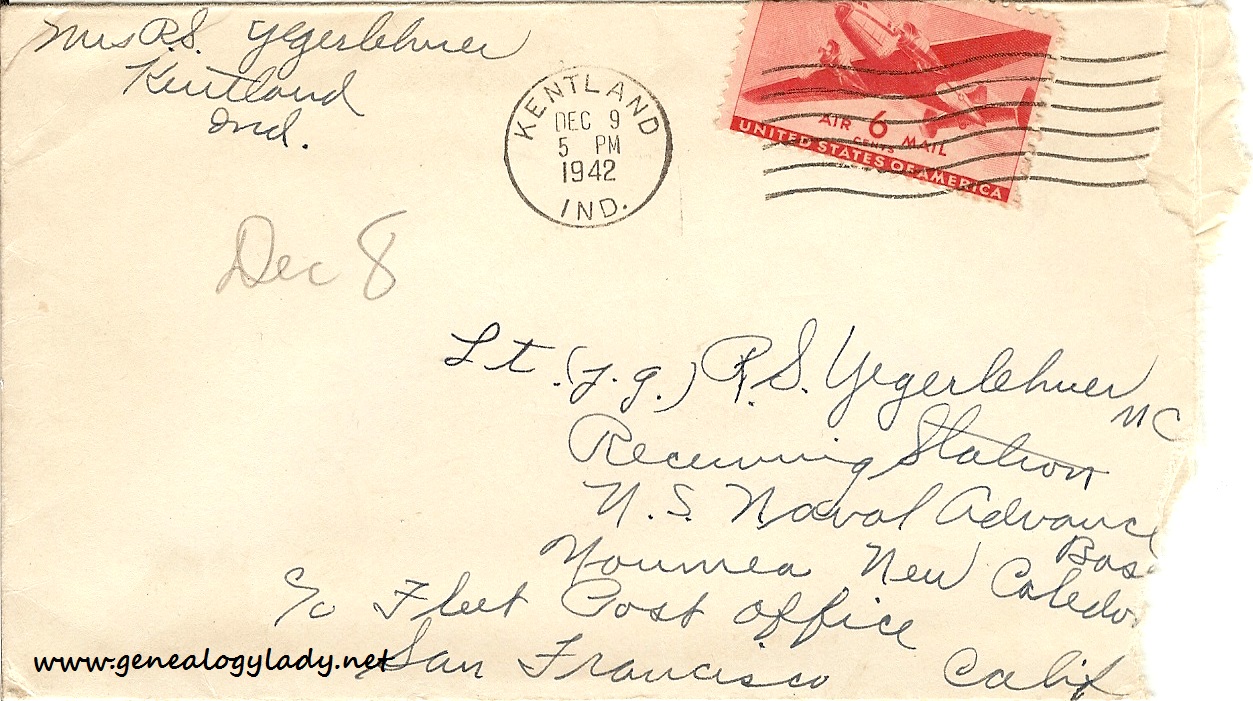 Mrs R.S. Yegerlehner
Kentland
Ind.
KENTLAND
DEC 9
5 PM
1942
IND.
AIR 6 MAIL
CENTS
UNITED STATES OF AMERICA
Dec 8
Lt. (j.g.) R.S. Yegerlehner MC
Receiving Station
U.S. Naval Advance
Base
Noumea New Caledo
c/o Fleet Post Office
San Francisco Calif
www.genealogylady.net